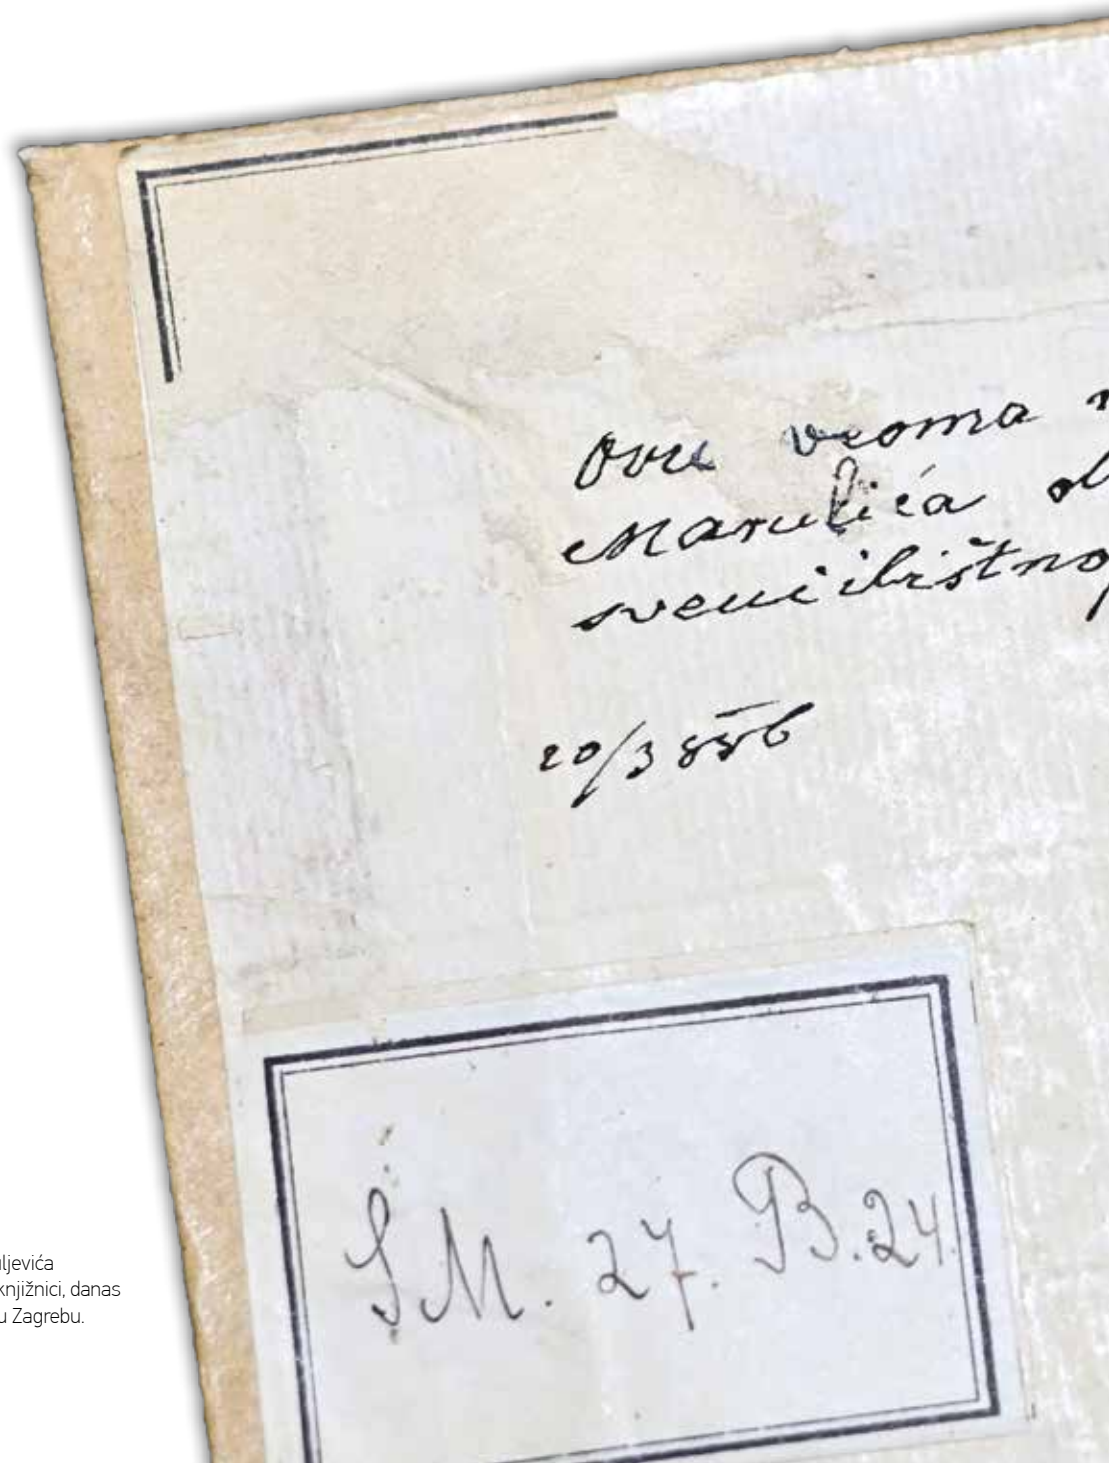 Ovu veoma
Marulića
sveučilištnoj
20/3 886
ŠM. 27. B. 24.
ljevića
knjižnici, danas
u Zagrebu.